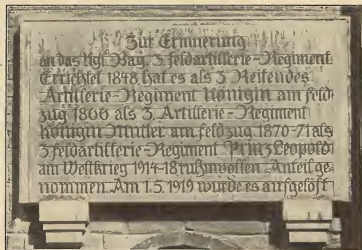 Zur Erinnerung
an das Kgl. Bay. 3. Feldartillerie-Regiment
Errichtet 1848 hat es als 3. Reitendes
Artillerie-Regiment Königin am Feld-
zug 1866 als 3. Artillerie-Regiment
Königin Mutter am Feldzug 1870-71 als
3. Feldartillerie-Regiment Prinz Leopold
am Weltkrieg 1914-18 ruhmvollen Anteil ge-
nommen. Am 1.5.1919 wurde es aufgelöst